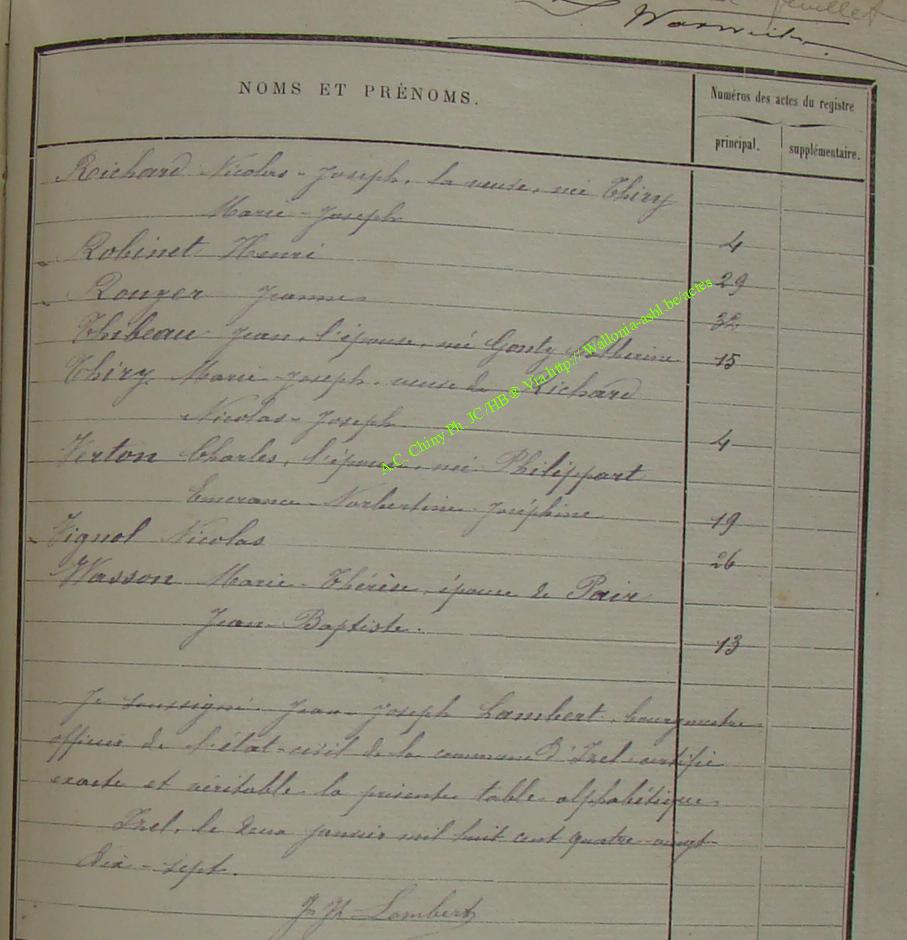 feuillet
NOMS ET PRÉNOMS.
Numéros des actes du registre
principal.
supplémentaire.
Richard Nicolas-Joseph, la veuve, né Thiry
Marie-Joseph 4
Robinet Henri 29
Rouyer Jeanne 32
Thibeau Jean, l'épouse, né Gouty Catherine 15
Thiry Marie-Joseph, veuve de Richard
Nicolas-Joseph 4
Verton Charles, l'épouse, né Philippart
Emerance Norbertine Joséphine 19
Vignol Nicolas 26
Wasson Marie-Thérèse, épouse de Pair
Jean-Baptiste. 13
Je soussigné Jean-Joseph Lambert, bourgmestre
officier de l'état-civil de la commune d'Izel certifie
exacte et véritable la présente table alphabétique
Izel, le deux janvier mil huit cent quatre-vingt-
dix-sept.
Jn Jh Lambert
A.C. Chiny Ph. JC/HB® Via http://Wallonia-asbl.be/actes